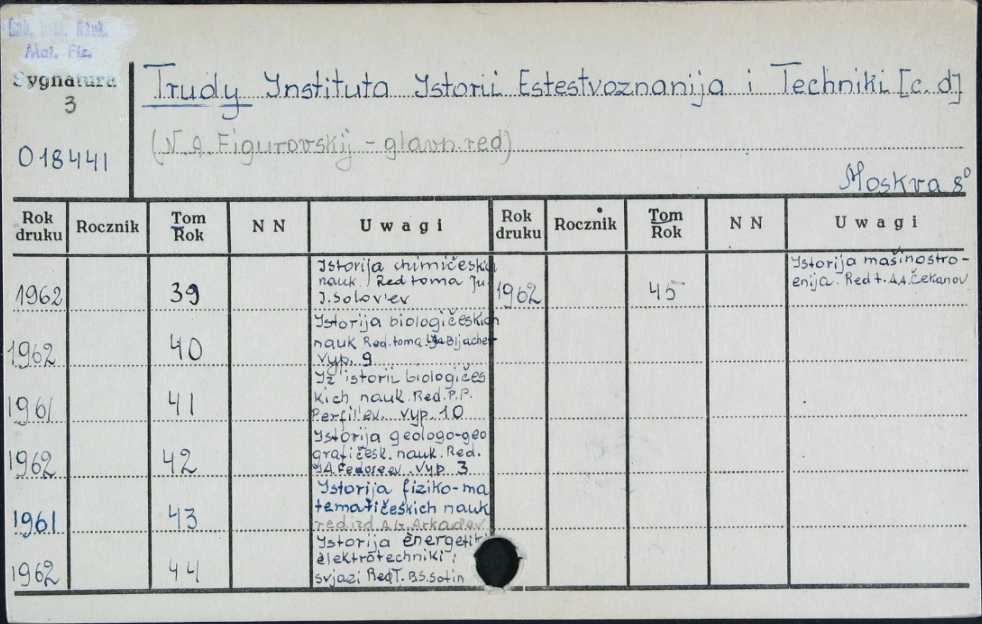 Mat. Fiz.
Sygnatura
3
018441
Trudy Instituta Istorii Estestvoznanija i Techniki [c.d]
(N.A. Figurovskij - glavn. red)
Moskva 8°
Rok druku Rocznik Tom Rok N N Uwagi Rok druku Rocznik Tom Rok N N Uwagi
1962 39 Istorija chimičeskich
nauk. Red toma Ju.
I. Solov'ev
1962 45 Istorija mašinostro-
enija. Red t. A.A. Čekanov
1962 40 Istorija biologičeskich
nauk Red. toma Bljacher
Vyp. 9
1961 41 Iz istorii biologičes
kich nauk. Red. P.P.
Perfil'ev. Vyp. 10
1962 42 Istorija geologo-geo
grafičesk. nauk. Red.
Vyp. 3
1961 43 Istorija fiziko-ma
tematičeskich nauk
1962 44 Istorija
elektrotechniki i
svjazi Red T. B.S. Sotin